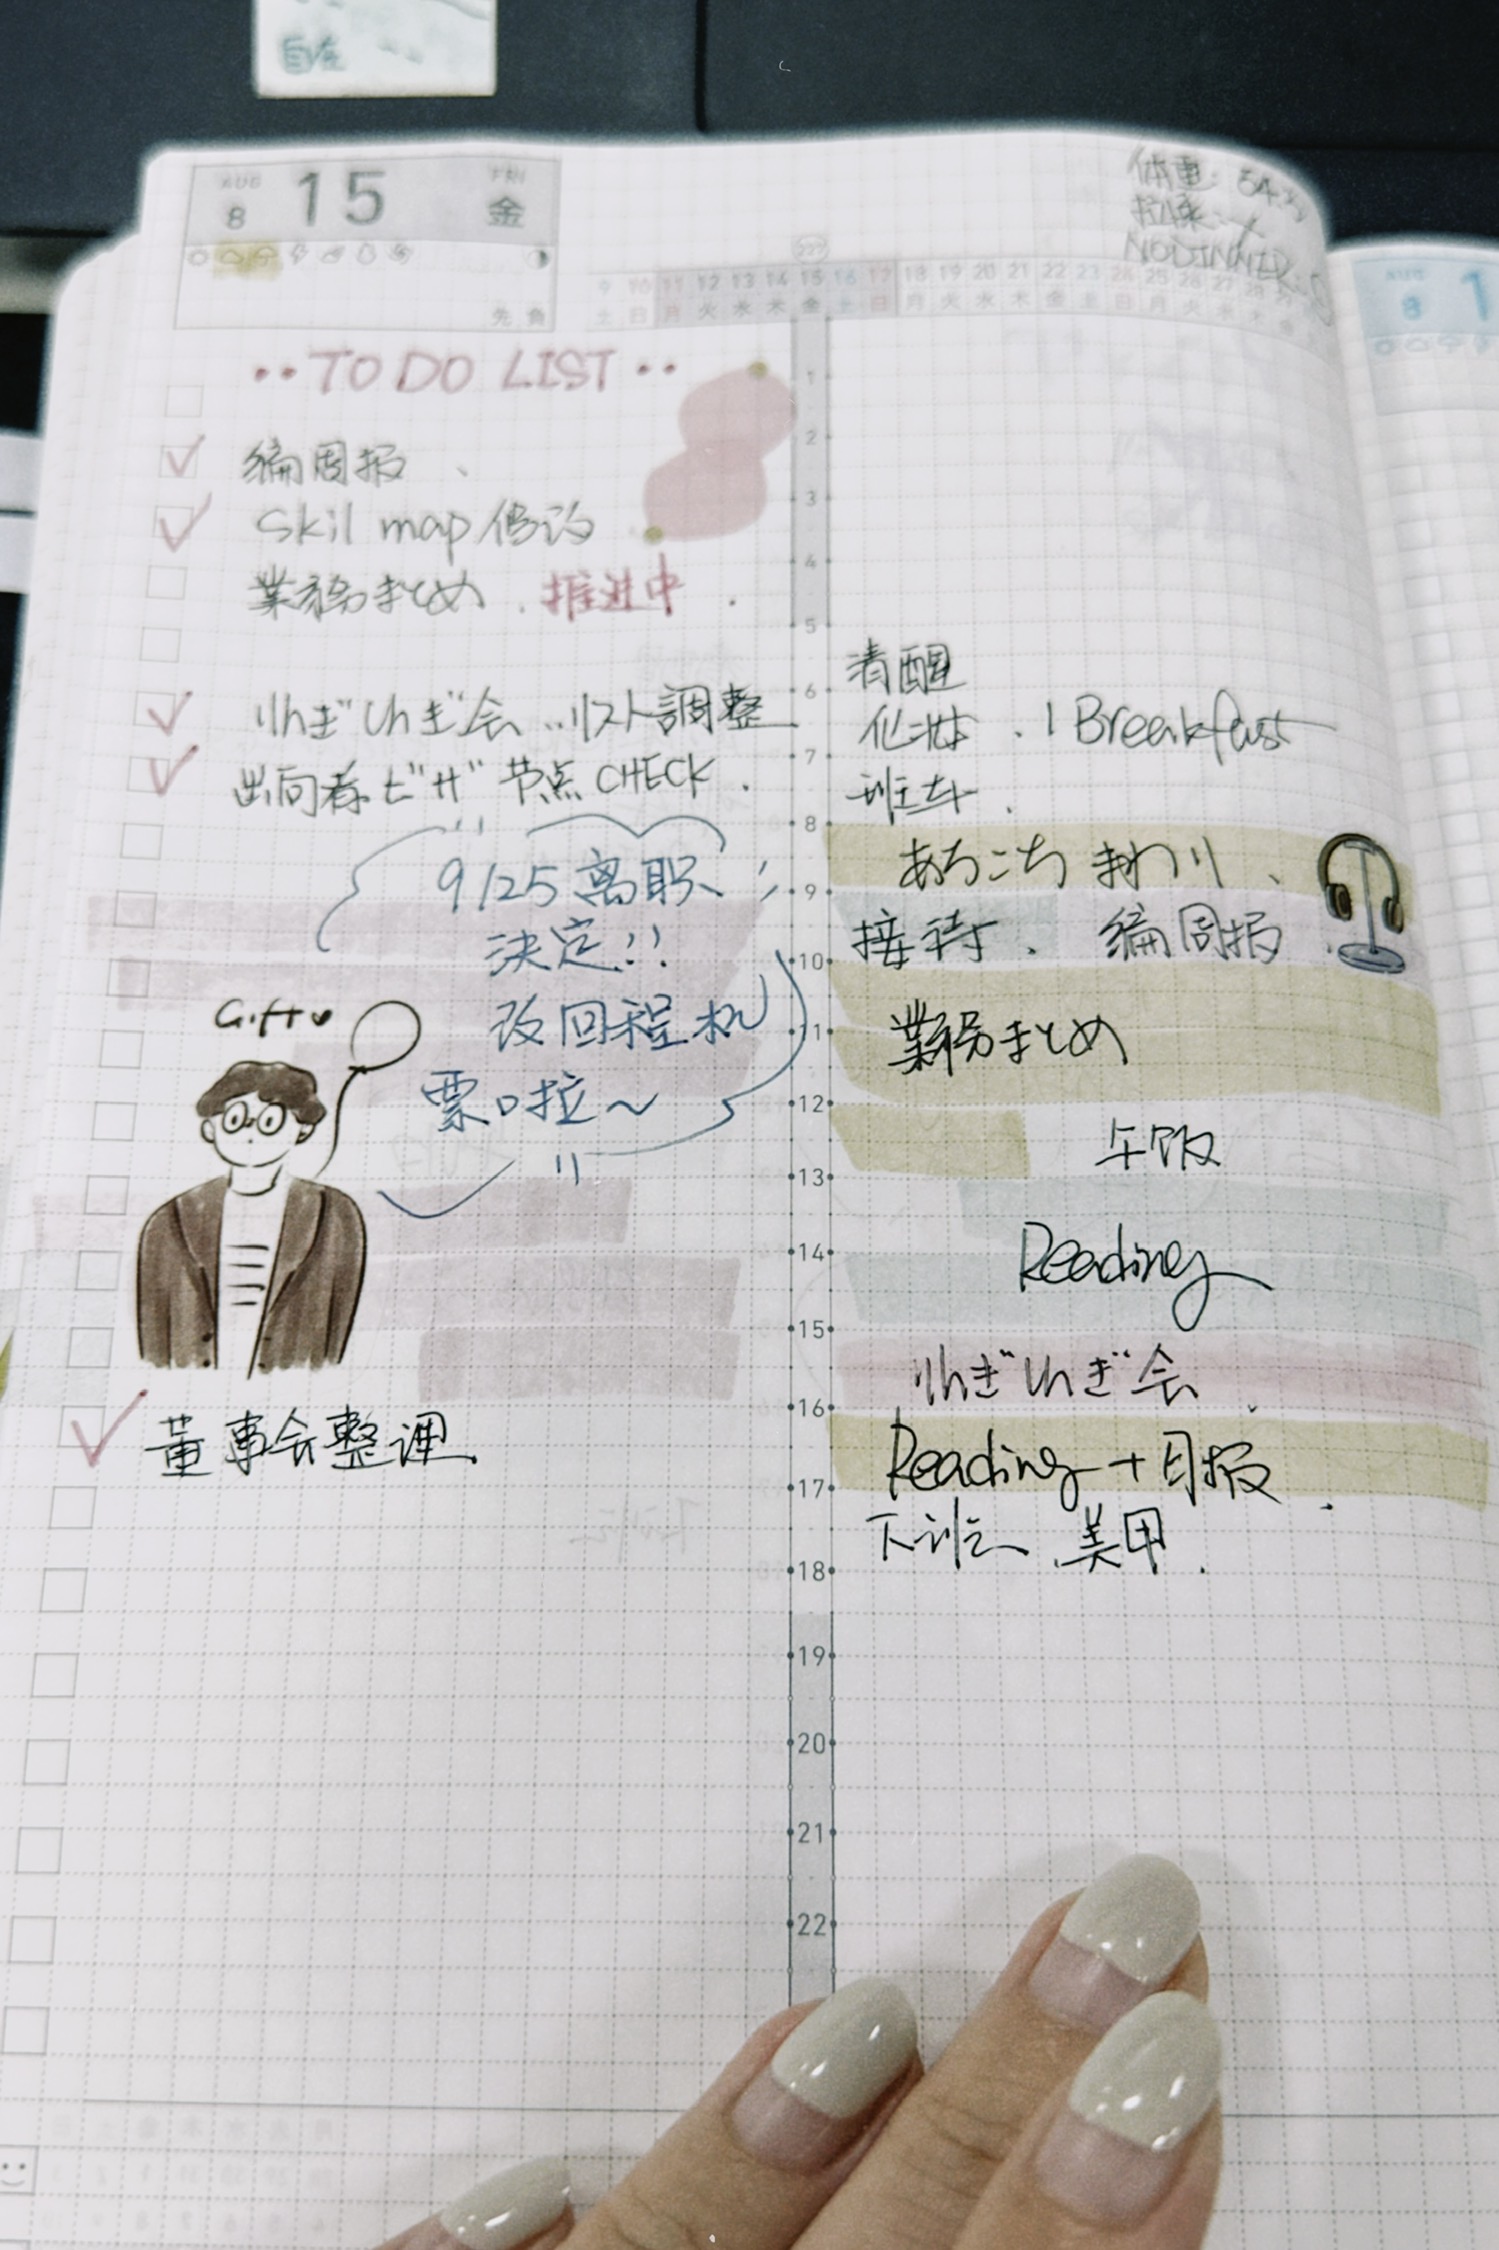 自在
AUG
8
15
FRI
金
先負
体重: 54.
NO DINNER:
227
9 10 11 12 13 14 15 16 17 18 19 20 21 22 23 24 25 26 27 28
土 日 月 火 水 木 金 土 日 月 火 水 木 金 土 日 月 火 水 木
AUG
8 1
••TO DO LIST••
编周报、
Skil map 修改
業務まとめ.推进中.
りんぎしんぎ会..リスト調整
出向者ビザ 节点 CHECK.
9/25 离职
決定!!
改回程机
票啦~
Gift
董事会整理.
1
2
3
4
5
6
7
8
9
10
11
12
13
14
15
16
17
18
19
20
21
22
清醒
化妆 . Breakfast
班车.
あちこちまわり、
接待. 编周报.
業務まとめ
午饭
Reading
りんぎしんぎ会.
Reading + 日报.
下班 .美甲.